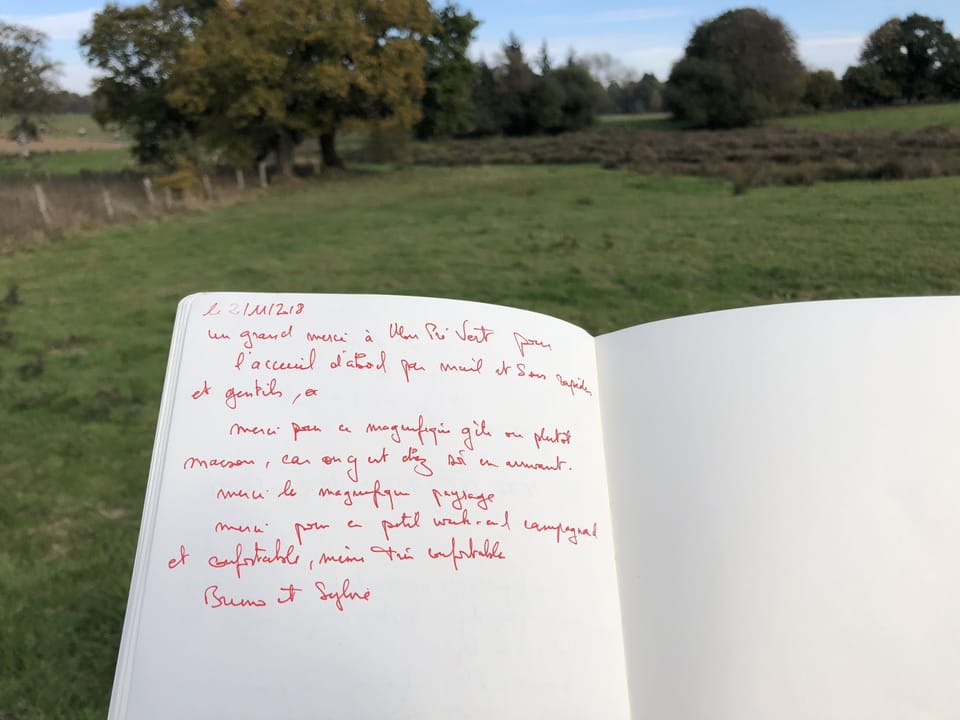 le 2/11/2018
un grand merci à Mon Pré Vert pour
l'accueil d'abord par mail et Sms rapides
et gentils,
merci pour ce magnifique gîte ou plutôt
maison, car on y est chez soi en arrivant.
merci le magnifique paysage
merci pour ce petit week-end campagnard
et confortable, même très confortable
Bruno et Sylvie